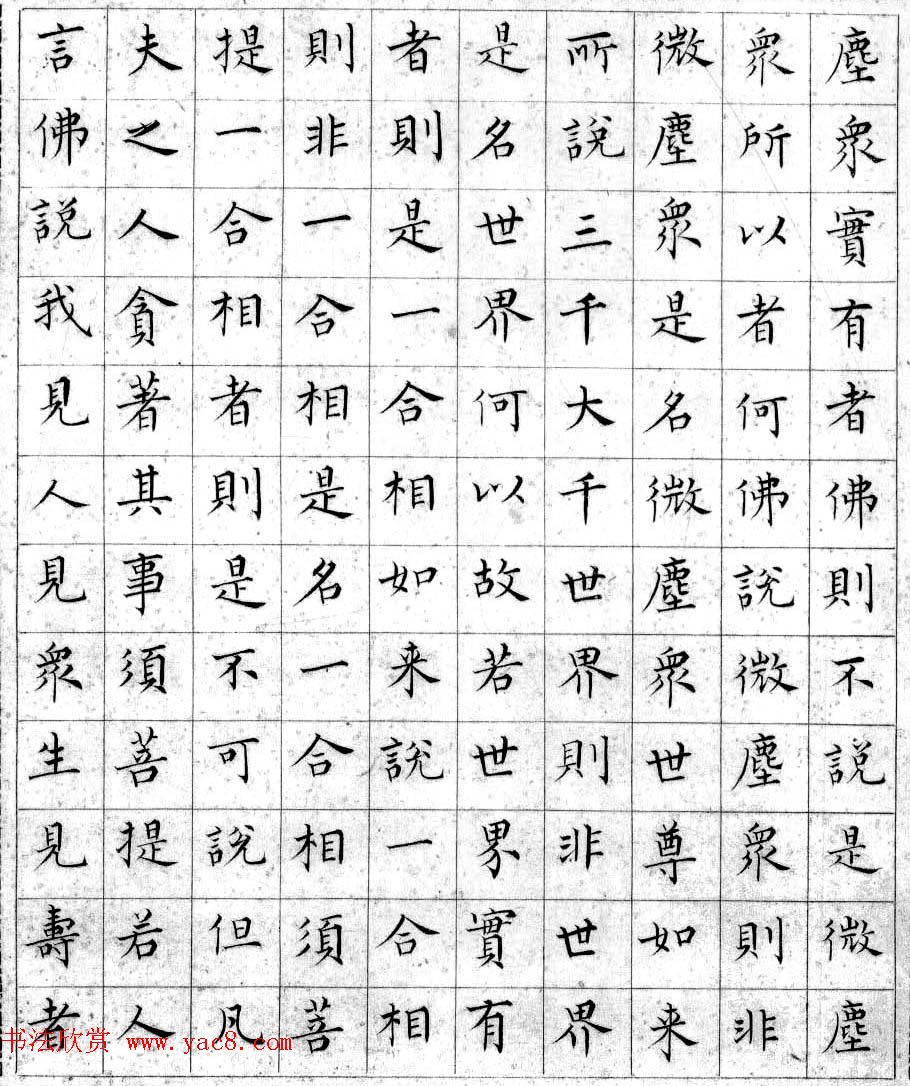 塵眾實有者佛則不說是微塵
眾所以者何佛說微塵眾則非
微塵眾是名微塵眾世尊如来
所說三千大千世界則非世界
是名世界何以故若世界實有
者則是一合相如来說一合相
則非一合相是名一合相須菩
提一合相者則是不可說但凡
夫之人貪著其事須菩提若人
言佛說我見人見眾生見壽者
书法欣赏 www.yac8.com